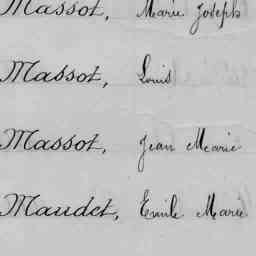 Massot, Marie Joseph
Massot, Louis
Massot, Jean Marie
Maudet, Emile Marie